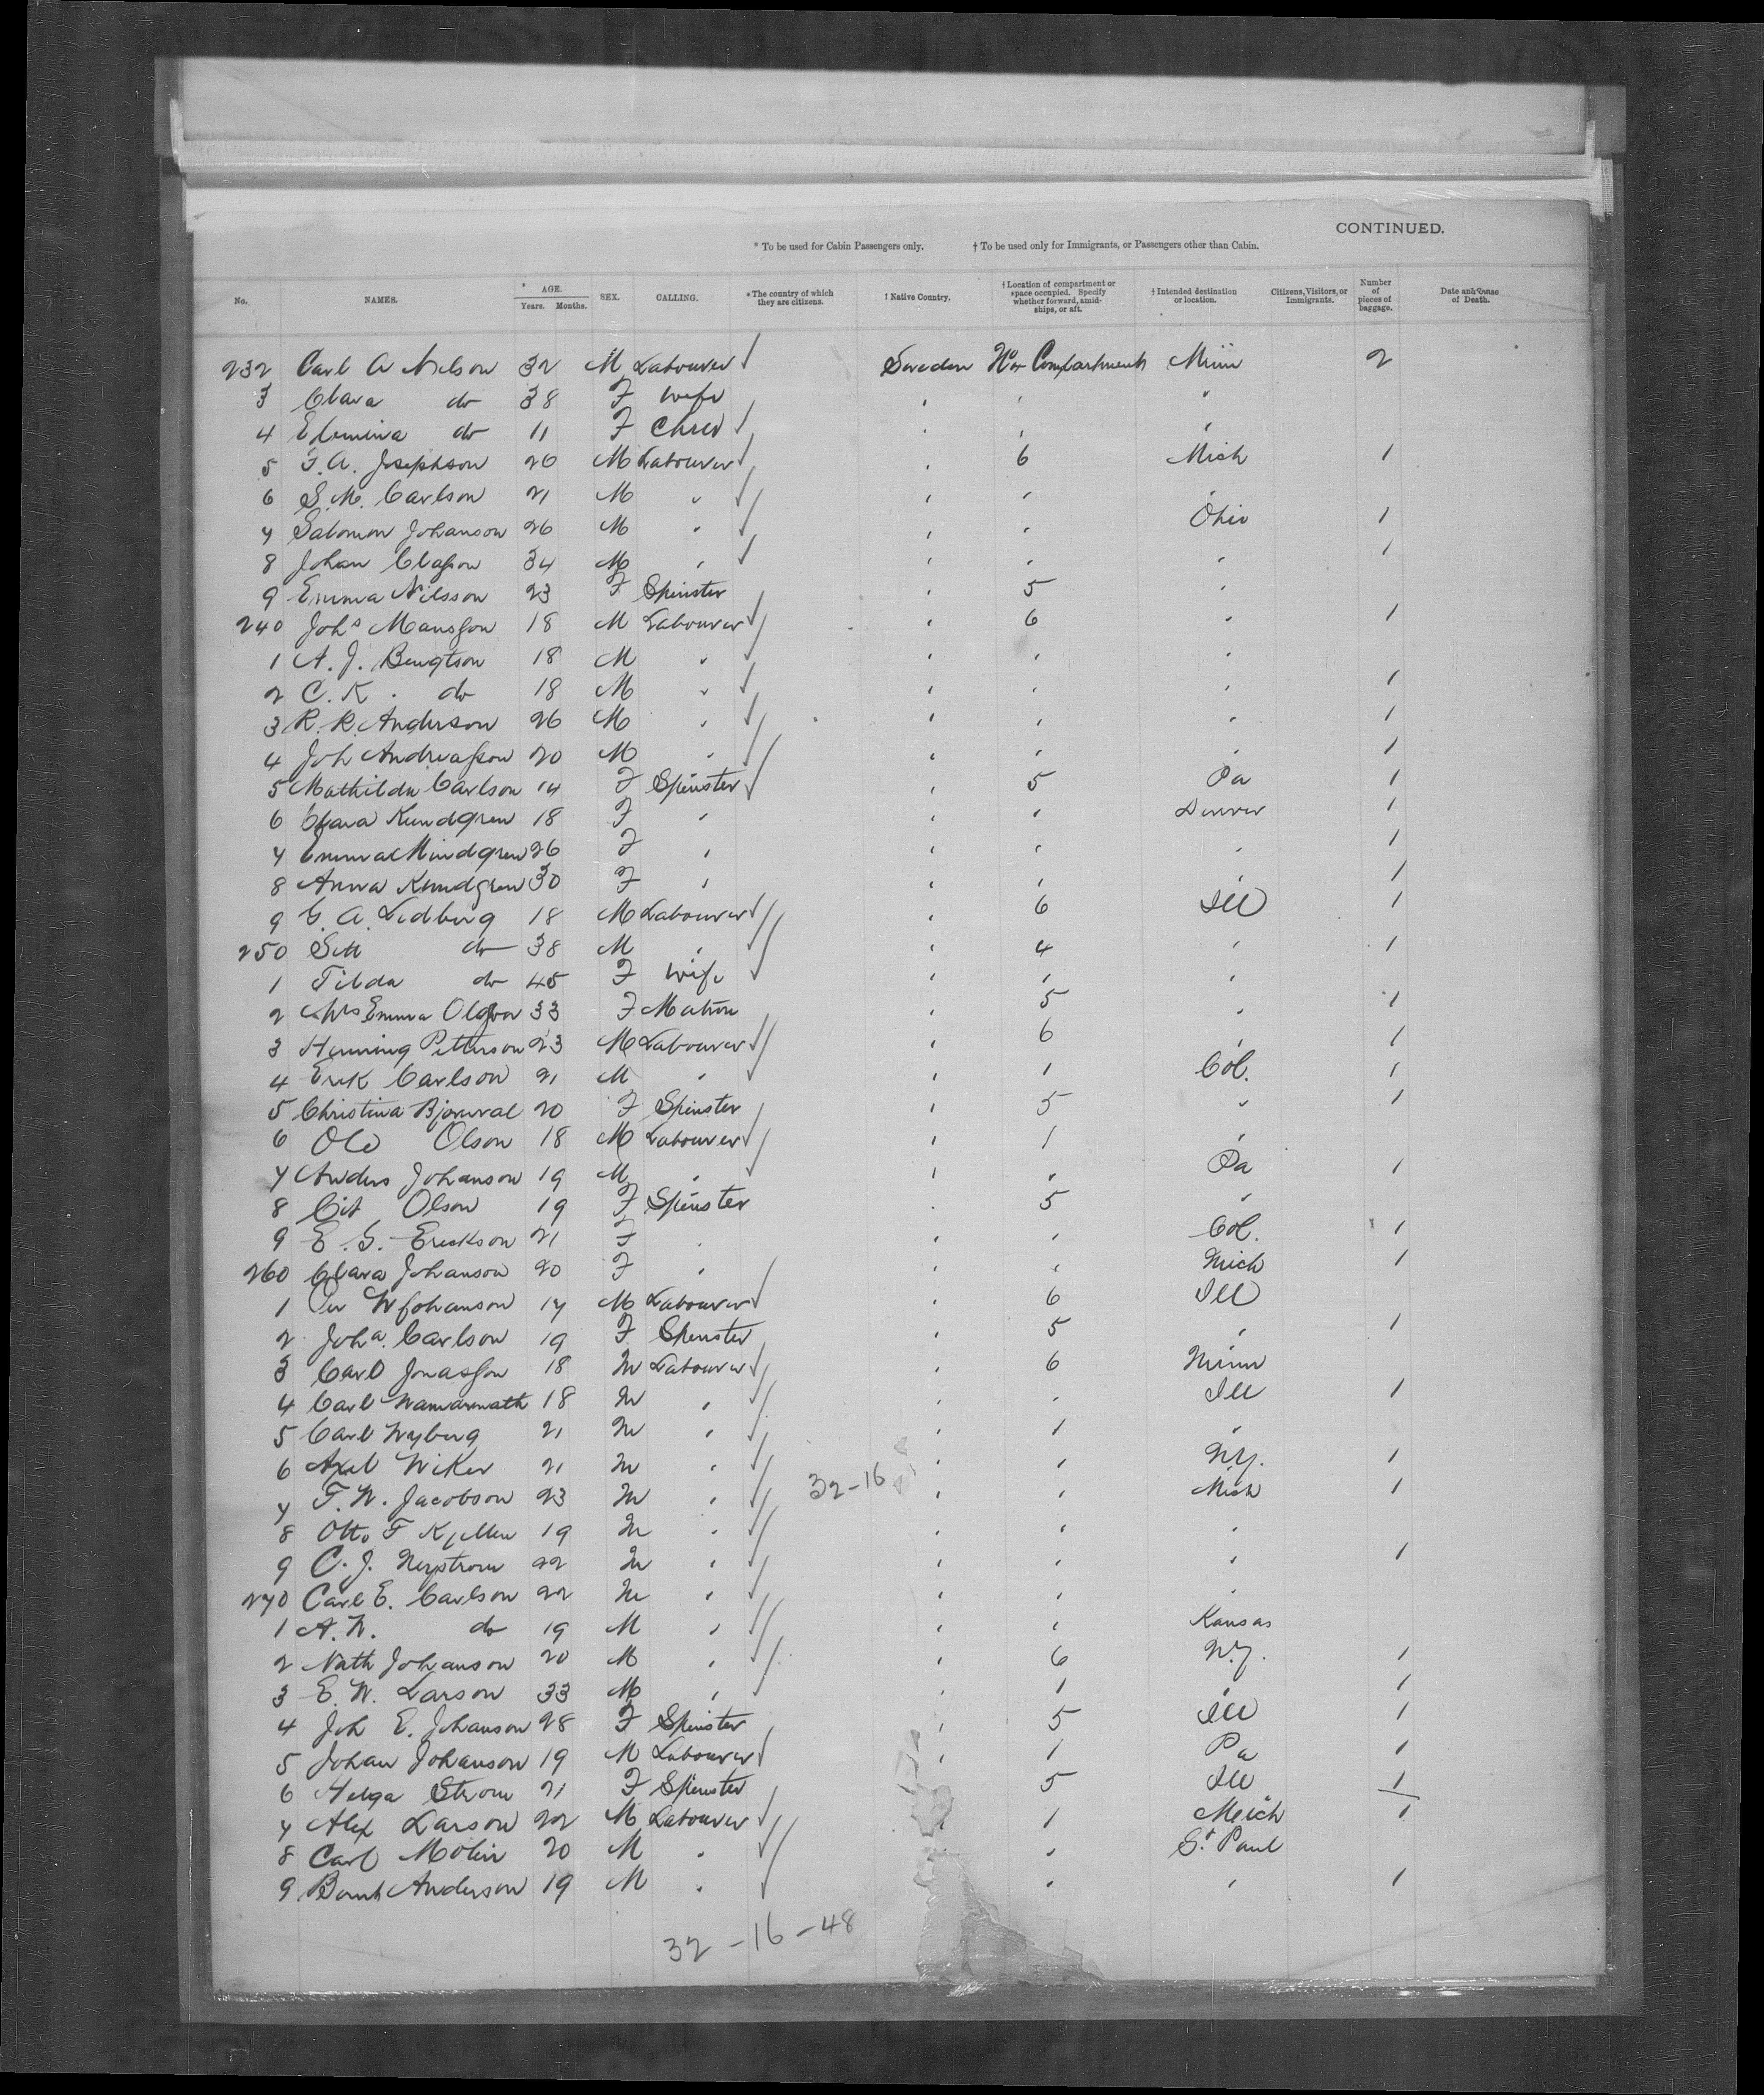 CONTINUED.
* To be used for Cabin Passengers only. † To be used only for Immigrants, or Passengers other than Cabin.
No. NAMES. * AGE. Years. Months. SEX. CALLING. * The country of which they are citizens. † Native Country. † Location of compartment or space occupied. Specify whether forward, amidships, or aft. † Intended destination or location. Citizens, Visitors, or Immigrants. Number of pieces of baggage. Date and Cause of Death.
232 Carl A Nelson 32 M Labourer Sweden Compartment Minn 2
3 Clara do 38 F wife " " "
4 do 11 F Child " " "
5 F.A. Josephson 20 M Labourer " 6 Mich 1
6 S.M. Carlson 21 M " " " "
7 Salomon Johanson 26 M " " " Ohio 1
8 Johan Claſson 34 M " " " " 1
9 Emma Nilsson 23 F Spinster " 5 "
240 Johs Mansſon 18 M Labourer " 6 " 1
1 A. J. Bengtson 18 M " " " "
2 C. K. do 18 M " " " " 1
3 R. R. Anderson 26 M " " " " 1
4 Joh Andreaſson 20 M " " " " 1
5 Mathilda Carlson 14 F Spinster " 5 Pa 1
6 Clara 18 F " " " Denver 1
7 Emma 26 F " " " " 1
8 Anna 30 F " " " " 1
9 G. A. Ledberg 18 M Labourer " 6 Ill 1
250 do 38 M " " 4 " 1
1 Tilda do 45 F wife " " "
2 Mrs Emma 33 F Matron " 5 " 1
3 Henning Petterson 23 M Labourer " 6 " 1
4 Erik Carlson 21 M " " 1 Col. 1
5 Christina 20 F Spinster " 5 " 1
6 Ole Olson 18 M Labourer " 1 "
7 Anders Johanson 19 M " " " Pa 1
8 Olson 19 F Spinster " 5 "
9 E. G. Erickson 21 F " " " Col. 1
260 Clara Johanson 20 F " " " Mich 1
1 Per W Johanson 17 M Labourer " 6 Ill
2 Joha Carlson 19 F Spinster " 5 " 1
3 Carl Jonasſon 18 M Labourer " 6 Minn
4 Carl 18 M " " " Ill 1
5 Carl Nyberg 21 M " " 1 "
6 Axel Wiker 21 M " " " N.Y. 1
7 F. W. Jacobson 23 M " 32-16 " " Mich 1
8 Otto F Kjellen 19 M " " " "
9 C. J. Nystrom 22 M " " " " 1
270 Carl E. Carlson 22 M " " " "
1 A. W. do 19 M " " " Kansas
2 Nath Johanson 20 M " " 6 N.Y. 1
3 E. W. Larson 33 M " " 1 " 1
4 Joh E. Johanson 28 F Spinster " 5 Ill 1
5 Johan Johanson 19 M Labourer " 1 Pa 1
6 Helga Strom 21 F Spinster 5 Ill 1
7 Alex Larson 22 M Labourer " 1 Mich 1
8 Carl Molin 20 M " " St. Paul
9 Anderson 19 M " " " 1
32-16-48